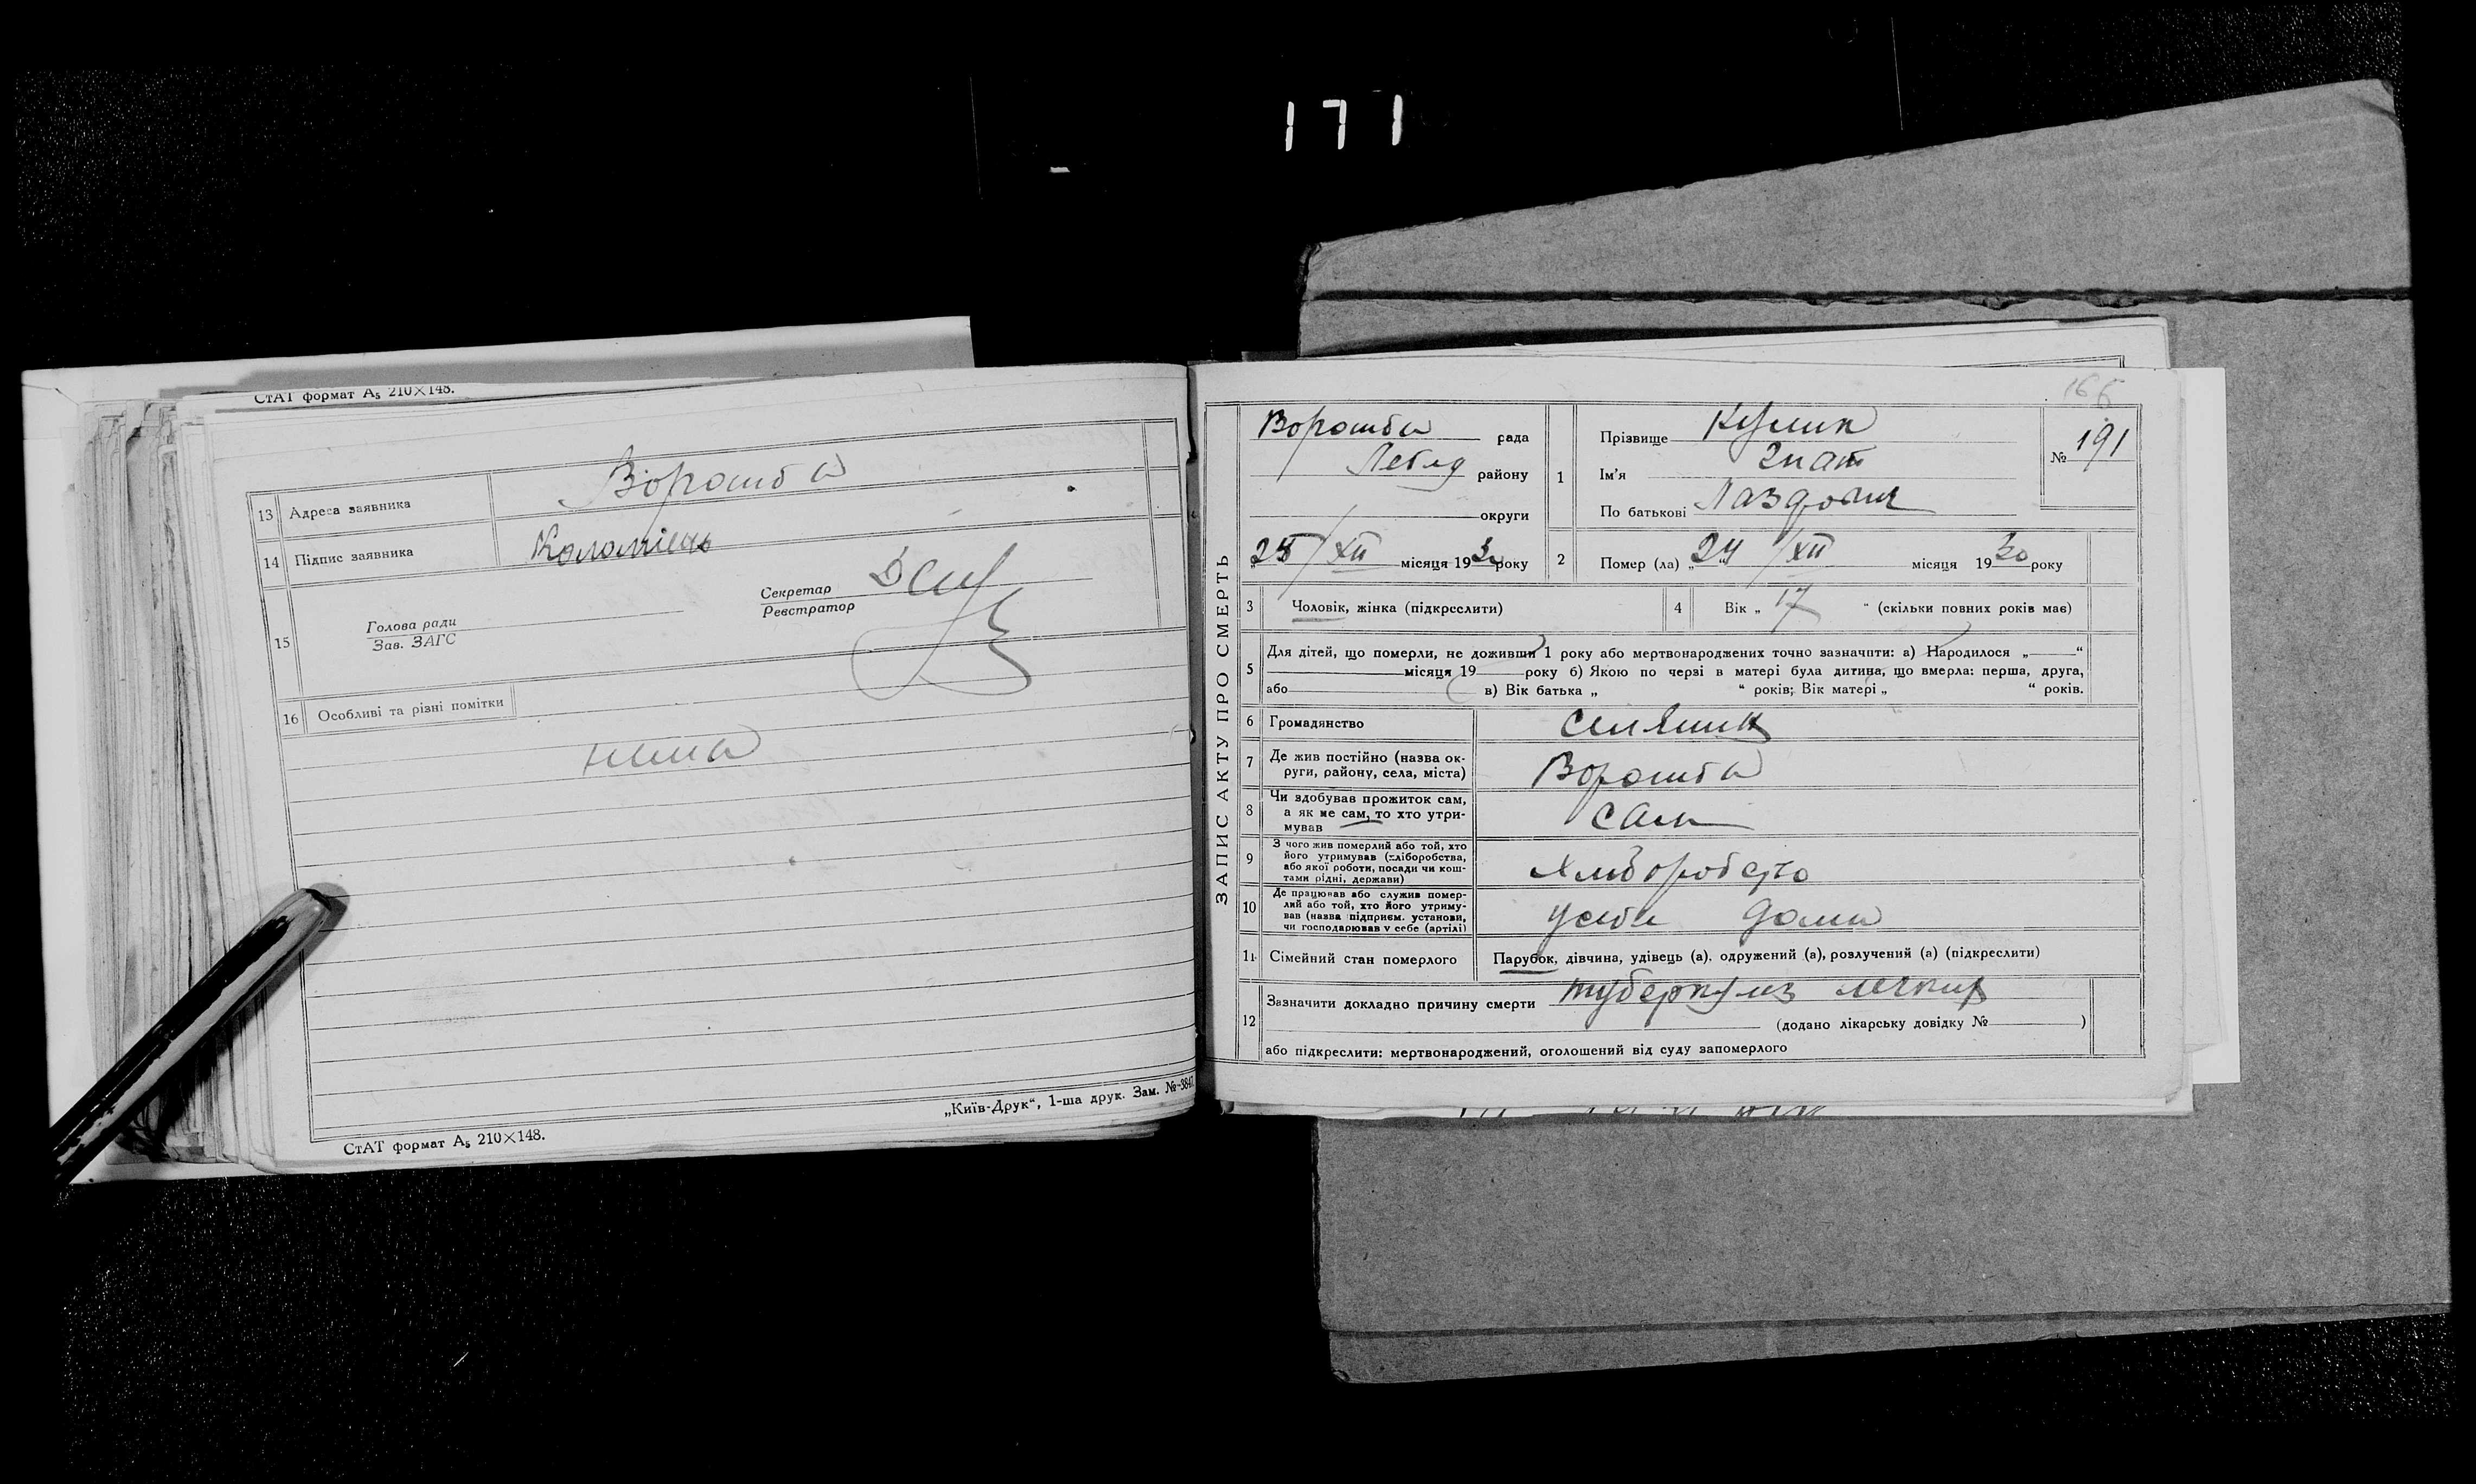 171
СтАТ формат А₅ 210×148.
13 Адреса заявника Ворожба
14 Підпис заявника Коломієць
15 Голова ради
Зав. ЗАГС
Секретар
Реєстратор
16 Особливі та різні помітки
нема
„Київ-Друк“, 1-ша друк. Зам. №-3847
СтАТ формат А₅ 210×148.
166
ЗАПИС АКТУ ПРО СМЕРТЬ
Ворожба рада
Лебед району
округи
25/XII місяця 1930 року
1 Прізвище Кулик
Ім’я Гнат
По батькові
№ 191
2 Помер (ла) „24/XII місяця 1930 року
3 Чоловік, жінка (підкреслити)
4 Вік „ 17 “ (скільки повних років має)
5 Для дітей, що померли, не доживши 1 року або мертвонароджених точно зазначити: а) Народилося „ “
місяця 19 року б) Якою по черзі в матері була дитина, що вмерла: перша, друга,
або в) Вік батька „ “ років; Вік матері „ “ років.
6 Громадянство селянин
7 Де жив постійно (назва ок-
руги, району, села, міста) Ворожба
8 Чи здобував прожиток сам,
а як не сам, то хто утри-
мував сам
9 З чого жив померлий або той, хто
його утримував (хліборобства,
або якої роботи, посади чи кош-
тами рідні, держави) Хліборобство
10 Де працював або служив помер-
лий або той, хто його утриму-
вав (назва підприєм. установи,
чи господарював у себе (артілі) у себе дома
11 Сімейний стан померлого Парубок, дівчина, удівець (а), одружений (а), розлучений (а) (підкреслити)
12 Зазначити докладно причину смерти туберкульз легких
(додано лікарську довідку № )
або підкреслити: мертвонароджений, оголошений від суду запомерлого